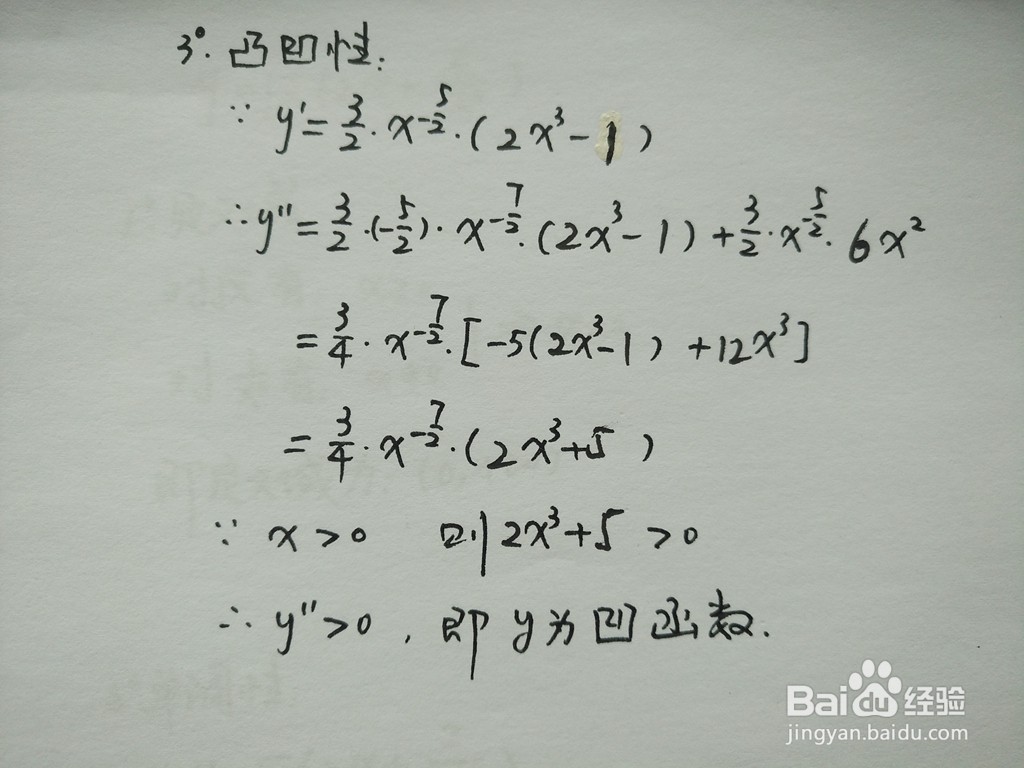 3°. 凸凹性:
∵ y'=3/2·x^(-5/2)·(2x³-1)
∴y''=3/2·(-5/2)·x^(-7/2)·(2x³-1)+3/2·x^(-5/2)·6x²
=3/4·x^(-7/2)·[-5(2x³-1)+12x³]
=3/4·x^(-7/2)·(2x³+5)
∵ x>0 则2x³+5>0
∴ y''>0,即y为凹函数.
Bai经验
jingyan.baidu.com